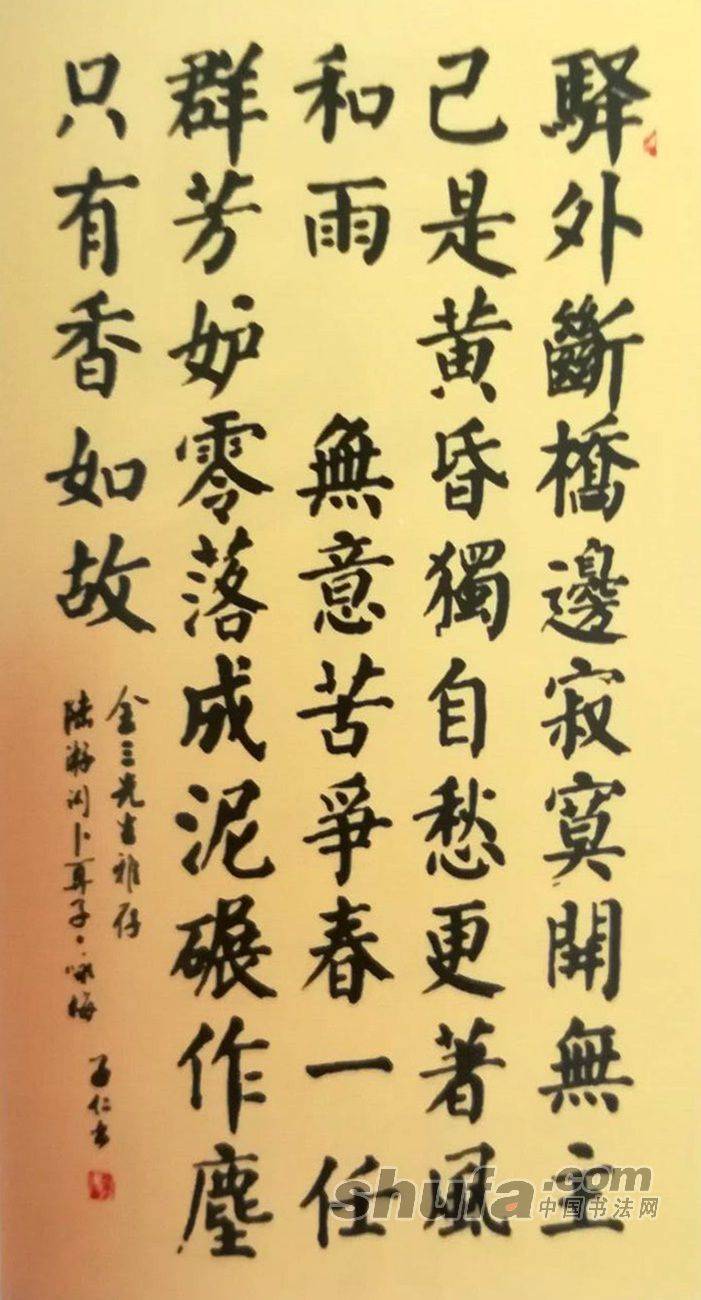 驛外斷橋邊寂寞開無主
已是黃昏獨自愁更著風
和雨 無意苦爭春一任
群芳妒零落成泥碾作塵
只有香如故
金三先生雅存
陸游词卜算子·咏梅
shufa.com
中国书法网